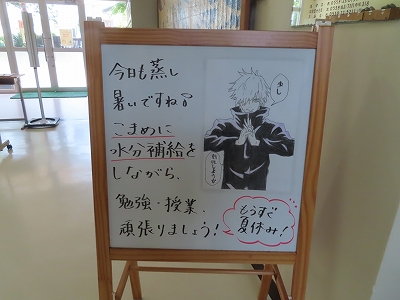 今日も蒸し
暑いですね!
こまめに
水分補給を
しながら、
勉強・授業、
頑張りましょう!
もうすぐ
夏休み!